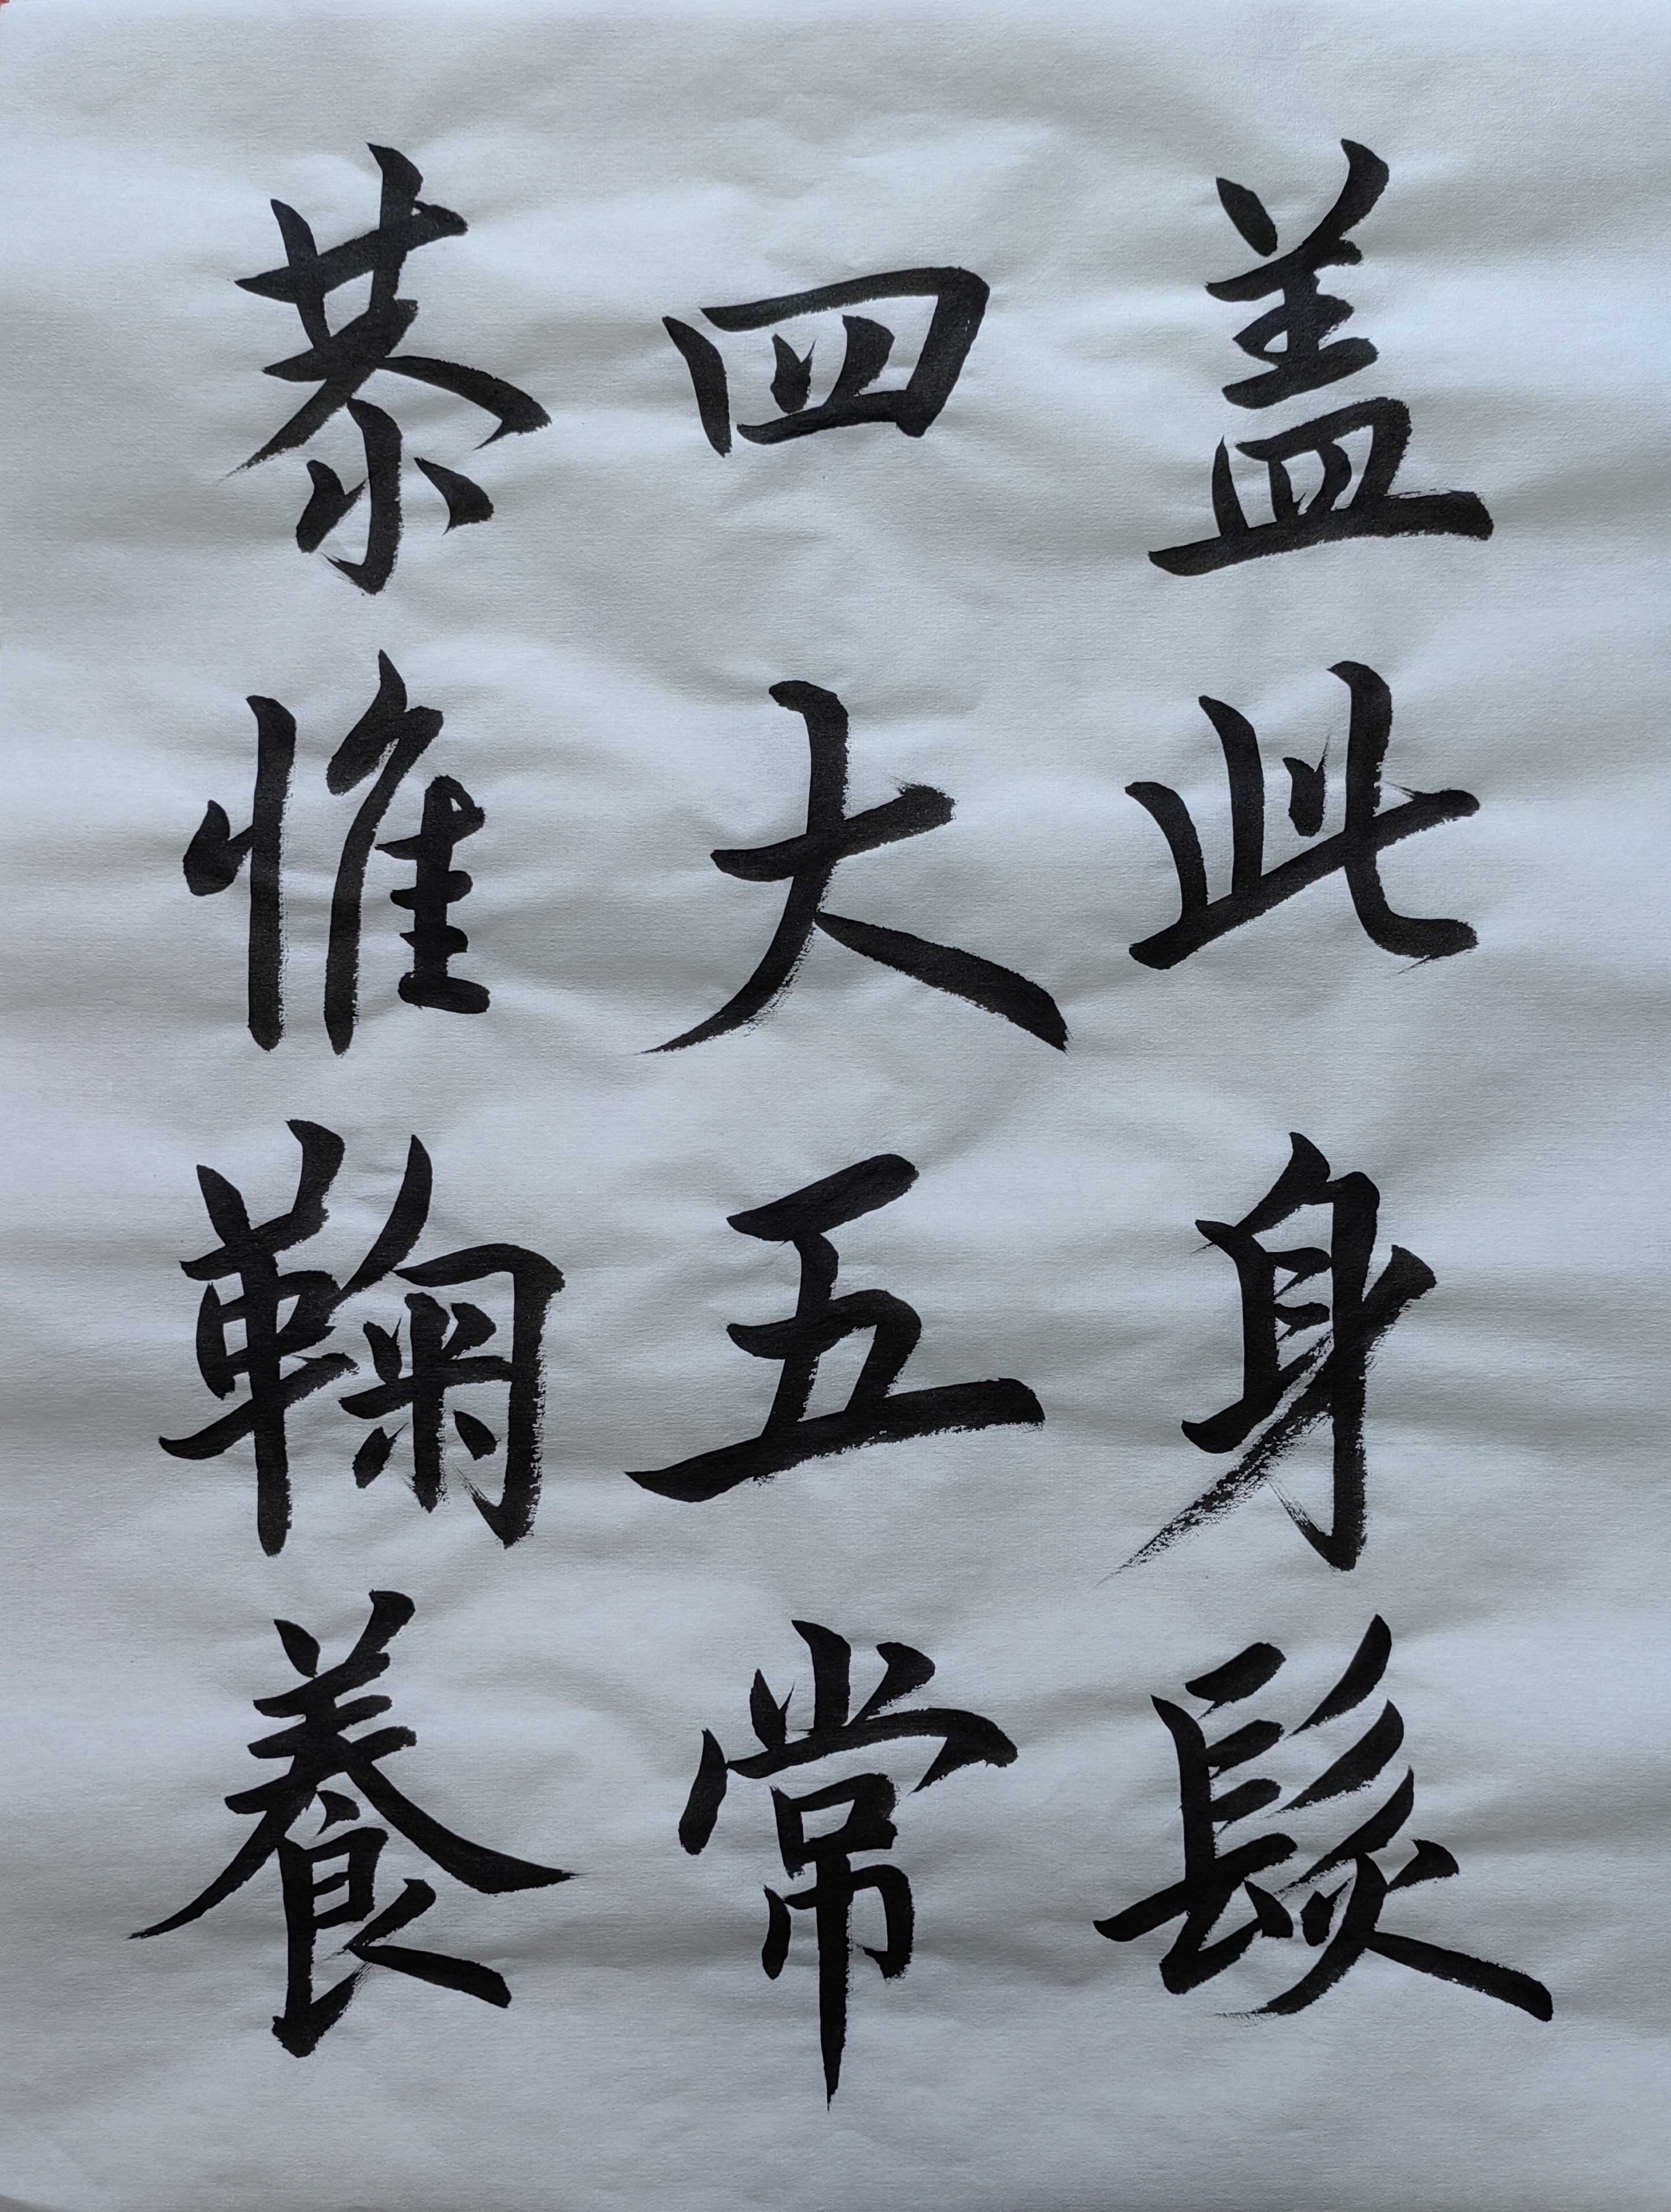 盖此身髮
四大五常
恭惟鞠養